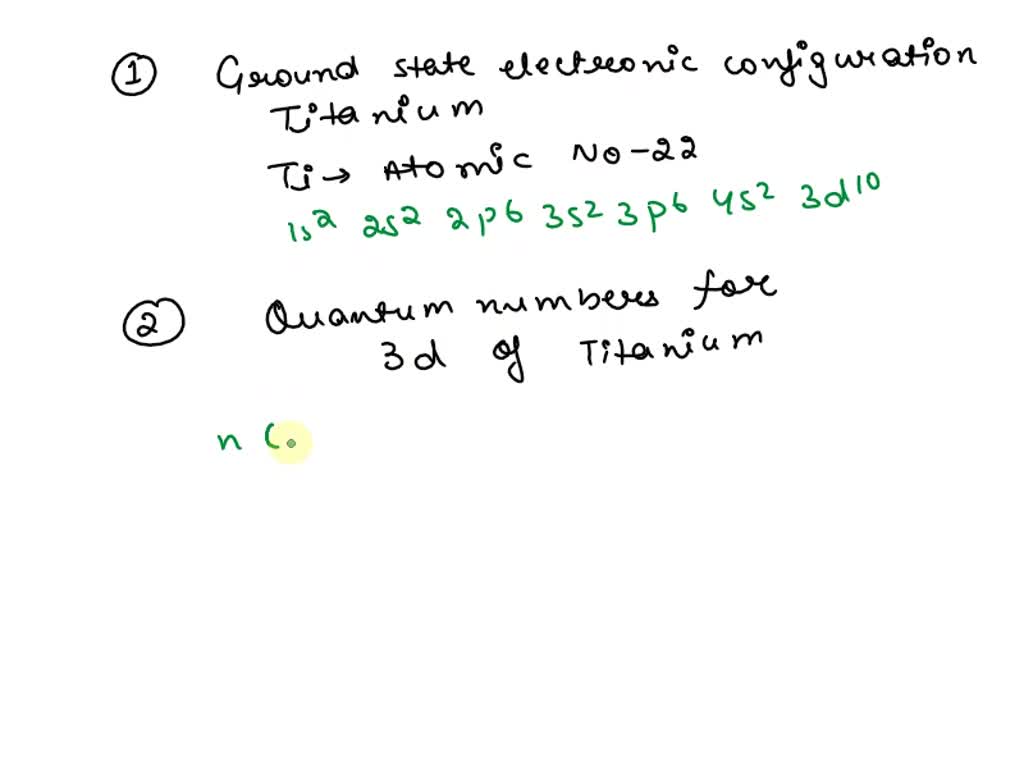 ① Ground state electronic configuration
Titanium
Ti → Atomic No-22
1s² 2s² 2p⁶ 3s² 3p⁶ 4s² 3d¹⁰
② Quantum numbers for
3d of Titanium
n (.